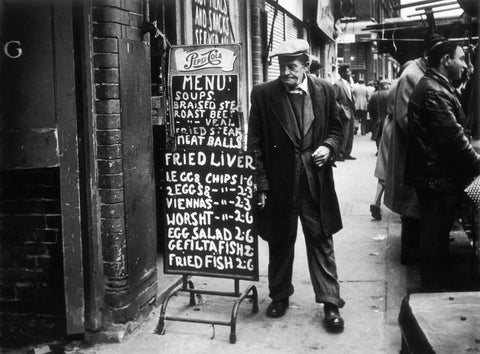 G
PEPSI-COLA
MENU
SOUPS
BRAISED STE
ROAST BEEF
" " VEAL
FRIED STEAK
MEAT BALLS
FRIED LIVER
1 EGG & CHIPS 1·6
2 EGGS & -"- 2·3
VIENNAS -"- 2·3
WORSHT -"- 2·6
EGG SALAD 2·6
GEFILTAFISH 2
FRIED FISH 2·6